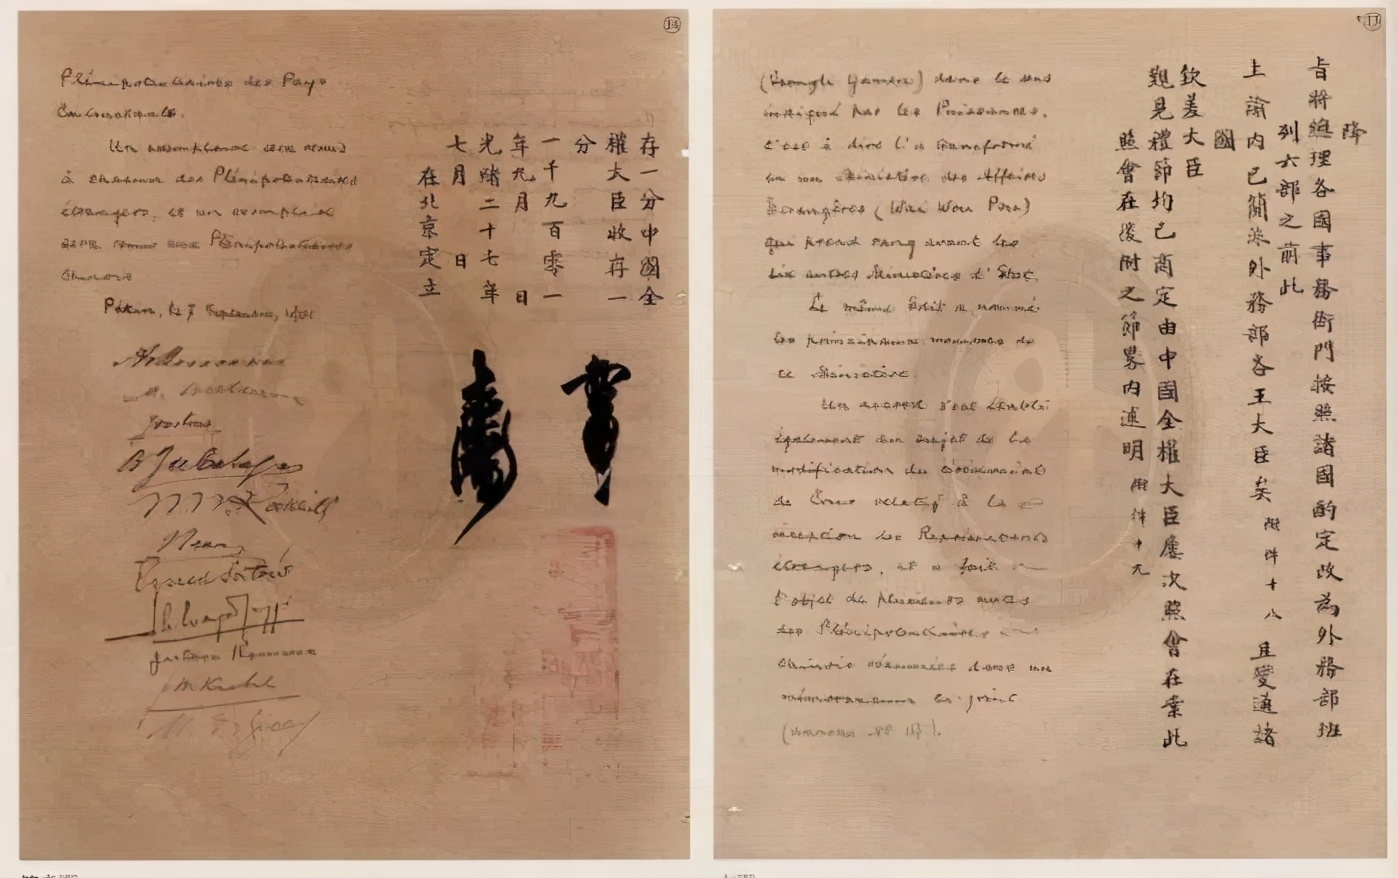 17
降
旨將總理各國事務衙門按照諸國酌定改為外務部班
列六部之前此
上諭內已簡派外務部各王大臣矣附件十八且變通諸
國
欽差大臣
覲見禮節均已商定由中國全權大臣屢次照會在案此
照會在後附之節畧內述明附件十九
(Tsungli Yamen) dans le sens
indiqué par les Puissances,
c'est à dire l'a transformé
en un Ministère des Affaires
Etrangères (Wai Wou Pou)
qui prend rang avant les
six autres Ministères d'Etat.
Le même Edit a nommé
les principaux membres de
ce Ministère.
Un accord s'est établi
également au sujet de la
modification du cérémonial
de Cour relatif à la
réception des Représentants
étrangers, et a fait
l'objet de plusieurs notes
des Plénipotentiaires
Chinois dans un
存一分中國全
權大臣收存一
分
一千九百零一
年九月 日
光緒二十七年
七月 日
在北京定立
Plénipotentiaires des Pays
Un exemplaire sera remis
à chacun des Plénipotentiaires
étrangers, et un exemplaire
sera remis aux Plénipotentiaires
Chinois
Pékin, le 7 Septembre, 1901